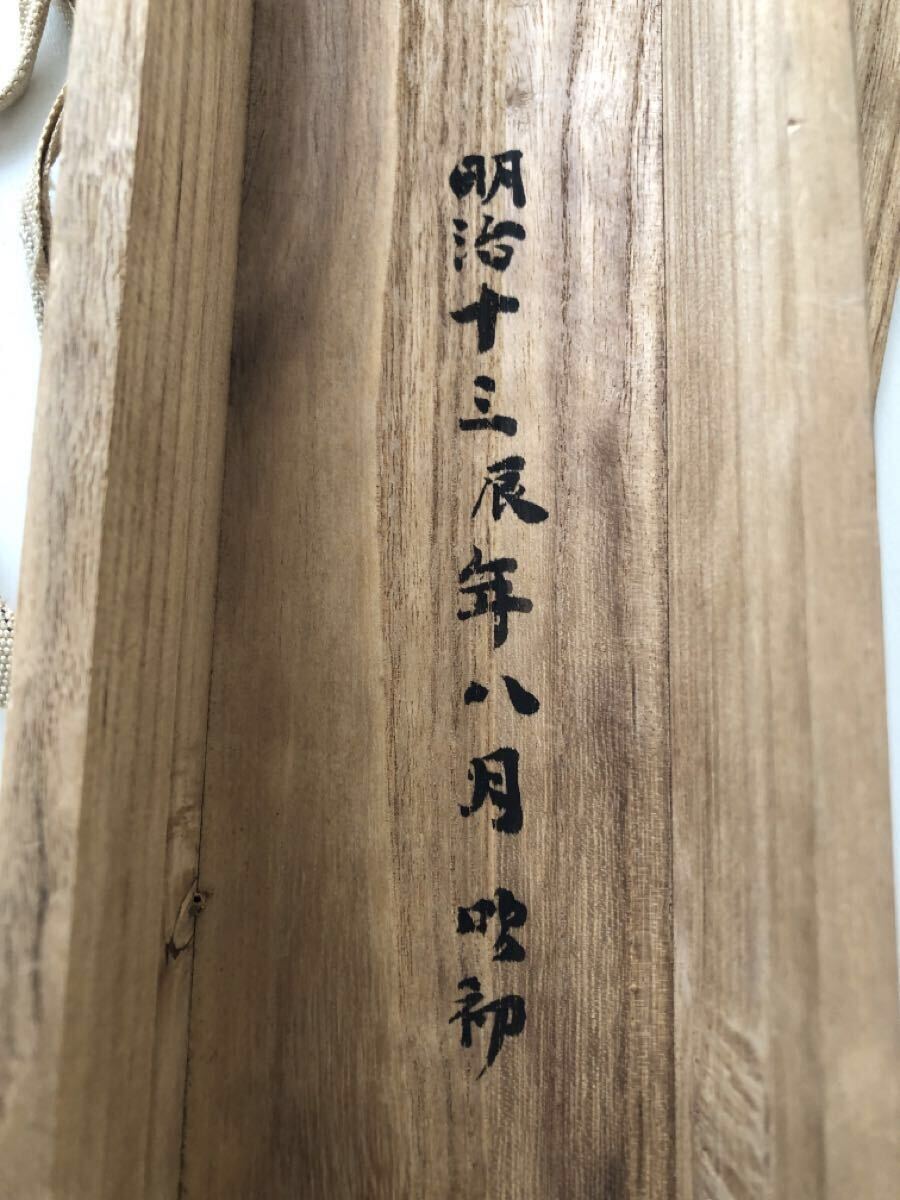 明治十三辰年八月 吹初